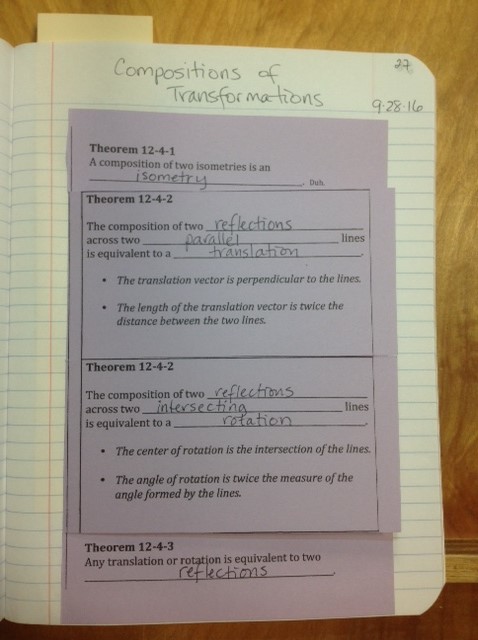 27
Compositions of
Transformations
9-28-16
Theorem 12-4-1
A composition of two isometries is an
isometry. Duh.
Theorem 12-4-2
The composition of two reflections
across two parallel lines
is equivalent to a translation.
• The translation vector is perpendicular to the lines.
• The length of the translation vector is twice the
distance between the two lines.
Theorem 12-4-2
The composition of two reflections
across two intersecting lines
is equivalent to a rotation.
• The center of rotation is the intersection of the lines.
• The angle of rotation is twice the measure of the
angle formed by the lines.
Theorem 12-4-3
Any translation or rotation is equivalent to two
reflections.